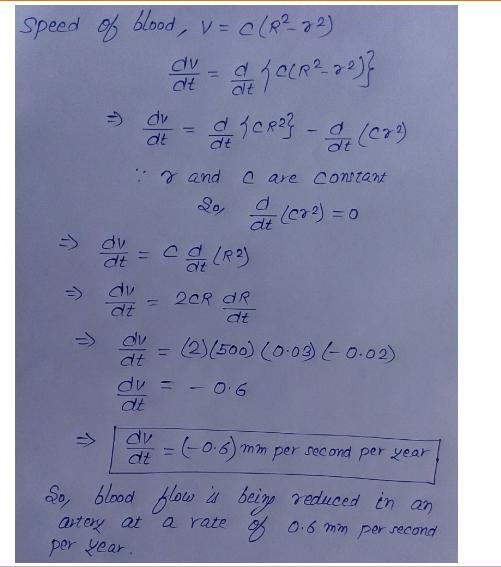 Speed of blood, V = C(R²-r²)
dv/dt = d/dt {C(R²-r²)}
⇒ dv/dt = d/dt {CR²} - d/dt (Cr²)
∵ r and C are constant
So, d/dt (Cr²) = 0
⇒ dv/dt = C d/dt (R²)
⇒ dv/dt = 2CR dR/dt
⇒ dv/dt = (2)(500)(0.03)(-0.02)
dv/dt = - 0.6
⇒ dv/dt = (-0.6) mm per second per year
So, blood flow is being reduced in an
artery at a rate of 0.6 mm per second
per year.